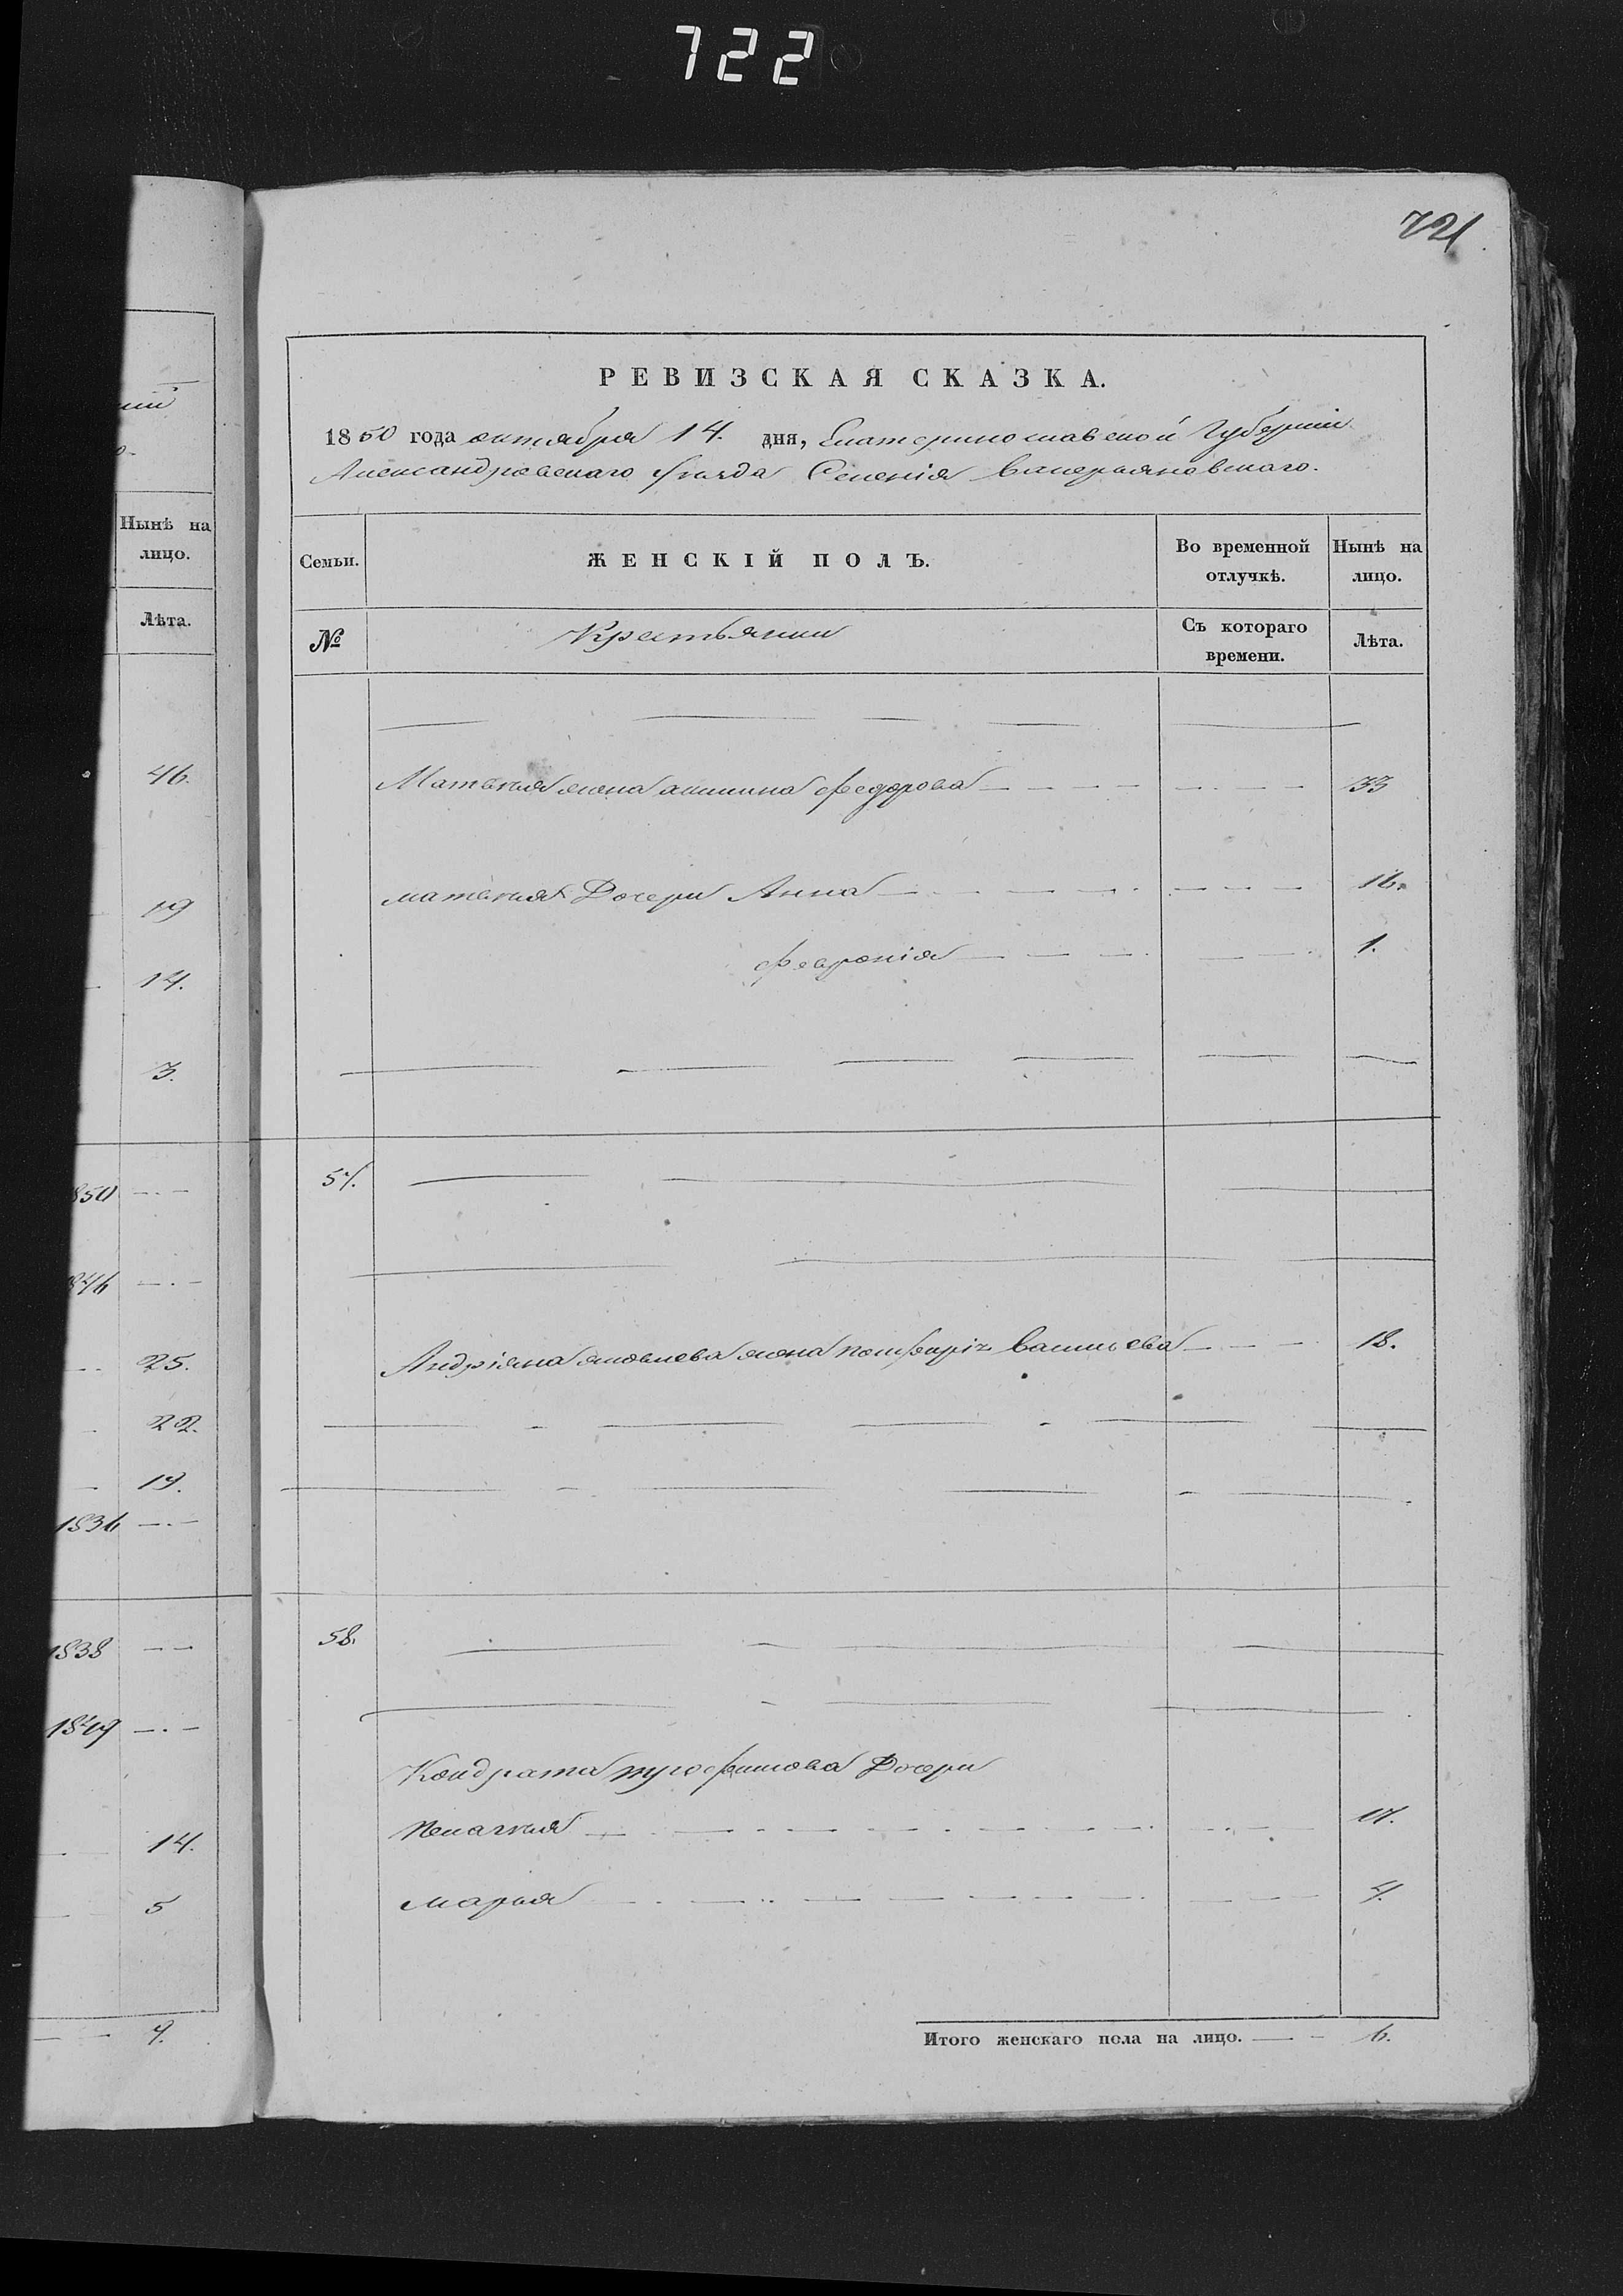 722
721
РЕВИЗСКАЯ СКАЗКА.
1850 года октября 14. дня, Екатеринославской Губерніи
Александровскаго уѣзда Селенія Валерьяновскаго.
Семьи.
ЖЕНСКІЙ ПОЛЪ.
Во временной отлучкѣ.
Нынѣ на лицо.
№
Крестьянки
Съ котораго времени.
Лѣта.
Матвѣя жена акилина федорова 33
матвѣя Дочери Анна 16.
февронія 1.
57.
Андріяна яковлева жена Васильева 18.
58.
Кондрата Дочери
Пелагея 17.
марья 4.
Итого женскаго пола на лицо. 6.
Нынѣ на
лицо.
Лѣта.
46.
19
14.
3.
850
846
25.
22.
19.
1836
1838
1849
14.
5